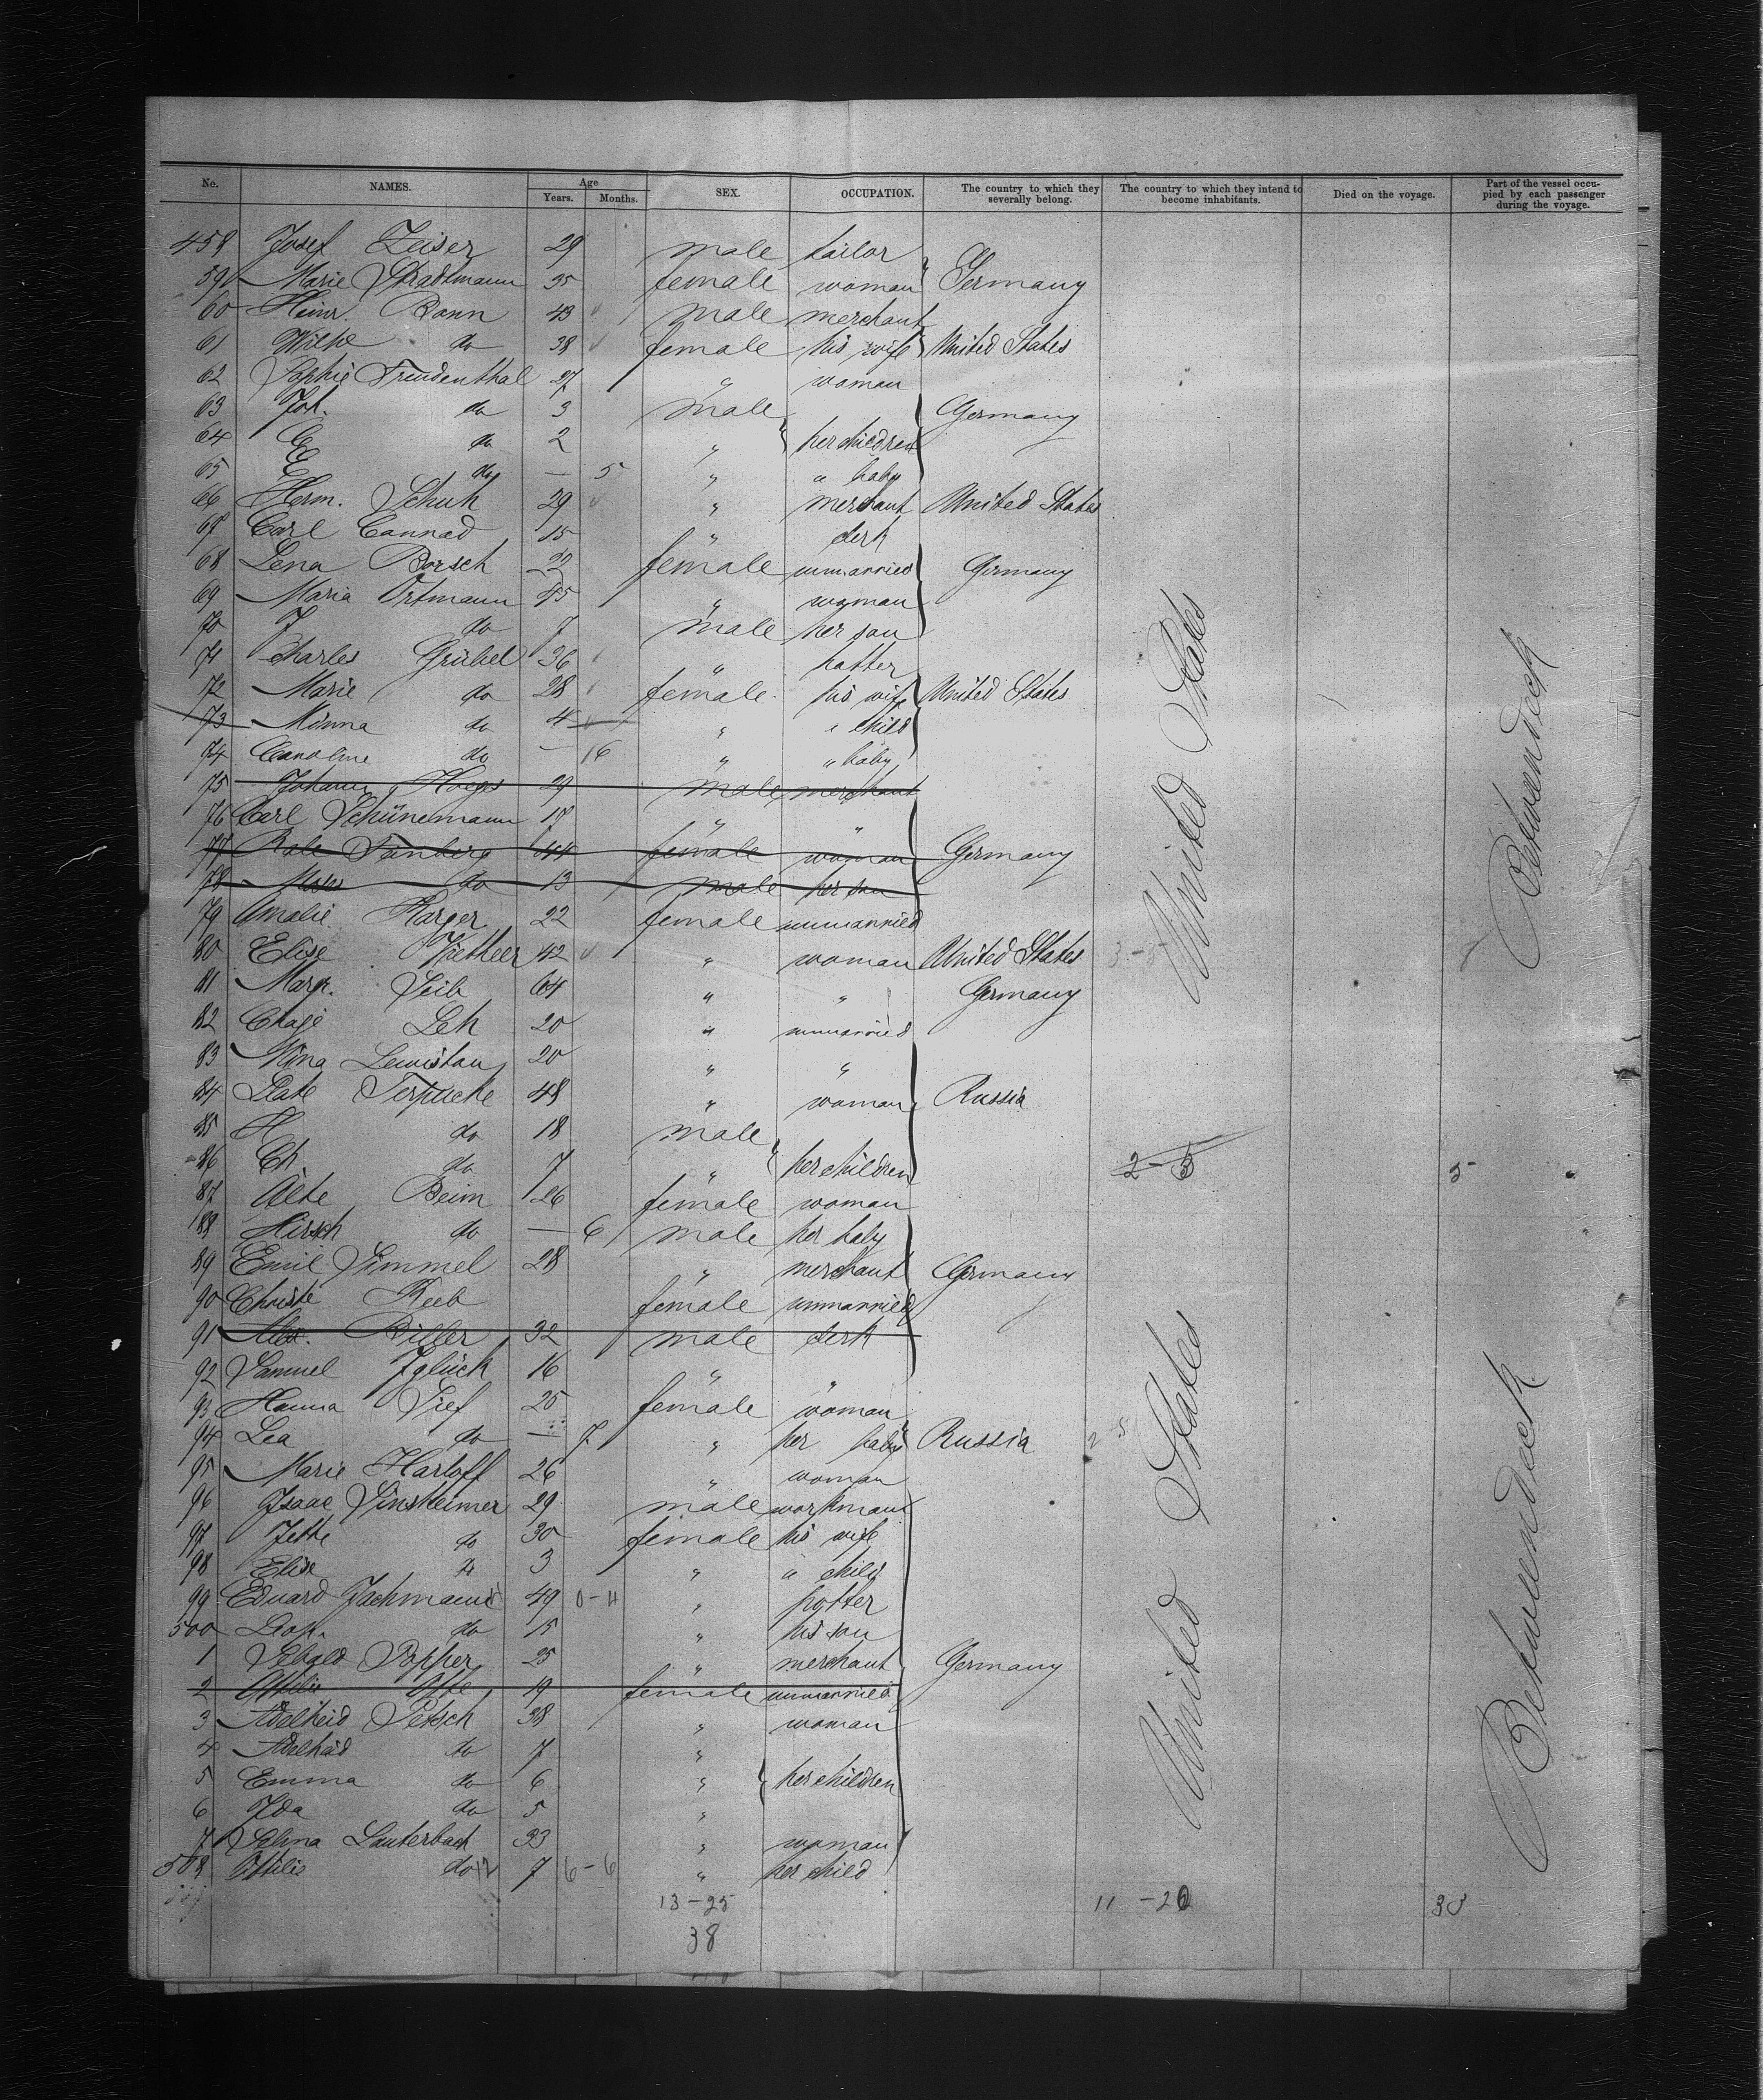 No. NAMES. Age Years. Months. SEX. OCCUPATION. The country to which they severally belong. The country to which they intend to become inhabitants. Died on the voyage. Part of the vessel occupied by each passenger during the voyage.
458 Josef Zeiser 29 male tailor
59 Marie Stradtmann 35 female woman Germany
60 Heinr. Bonn 43 male merchant
61 Wilhe do 38 female his wife United States
62 Sophie Freudenthal 27 " woman
63 Joh. do 3 male Germany
64 E do 2 " her children
65 E do — 5 " " baby
66 Herm. Schuh 29 " merchant United States
67 Carl Connad 15 " clerk
68 Lena Borsch 22 female unmarried Germany
69 Maria Ortmann 45 " woman
70 J do 7 male her son
71 Charles Grübel 36 " hatter
72 Marie do 28 female his wife United States
73 Minna do 4 " " child
74 Caroline do — 16 " " baby
75 Johann 29 male merchant
76 Carl Schünemann 17 " "
77 44 female woman Germany
78 Moses do 13 male her son
79 Amalie Karger 22 female unmarried
80 Elise 42 " woman United States 3-5
81 Margr. Seib 64 " " Germany
82 Chaje Leh 20 " unmarried
83 Mina Lewistan 20 " "
84 48 " woman Russia
85 H do 18 male
86 Ch do 7 " her children 2-3 5
87 Alte Beim 26 female woman
88 Hirsch do — 6 male her baby
89 Emil Simmel 28 " merchant Germany
90 Christe Reeb female unmarried
91 Alex. Biller 32 male clerk
92 Samuel Iglück 16 " "
93 Hanna Sief 25 female woman
94 Lea do — 7 " her baby Russia 2 5
95 Marie Harloff 26 " woman
96 Isaac Sinsheimer 29 male workman
97 Jette do 30 female his wife
98 Elise do 3 " " child
99 Eduard Jachmann 49 0-11 " potter
500 Leop. do 15 " his son
1 Popper 25 " merchant Germany
2 19 female unmarried
3 Adelheid Petsch 38 " woman
4 Adelheid do 7 "
5 Emma do 6 " her children
6 Ida do 5 "
7 Selma Lauterbach 33 " woman
508 Ottilie do 7 6-6 " her child
13-25 11 -20
38
United States
United States
Betweendeck
Betweendeck